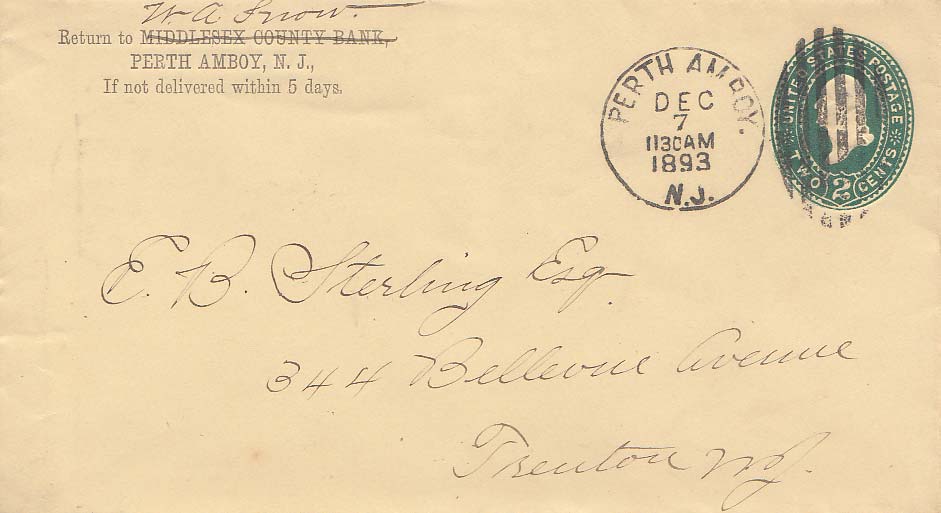 W. A. Snow.
Return to MIDDLESEX COUNTY BANK,
PERTH AMBOY, N. J.,
If not delivered within 5 days.
PERTH AMBOY.
DEC
7
1130AM
1893
N.J.
UNITED STATES POSTAGE
TWO 2 CENTS
E. B. Sterling Esq.
344 Bellevue Avenue
Trenton NJ.